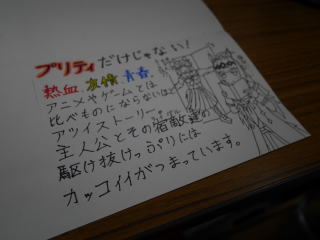 プリティだけじゃない!
熱血、友情、青春。
アニメやゲームとは
比べものにならないほど
アツイストーリー。
主人公とその宿敵達の
駆け抜けっぷりには
カッコイイがつまっています。